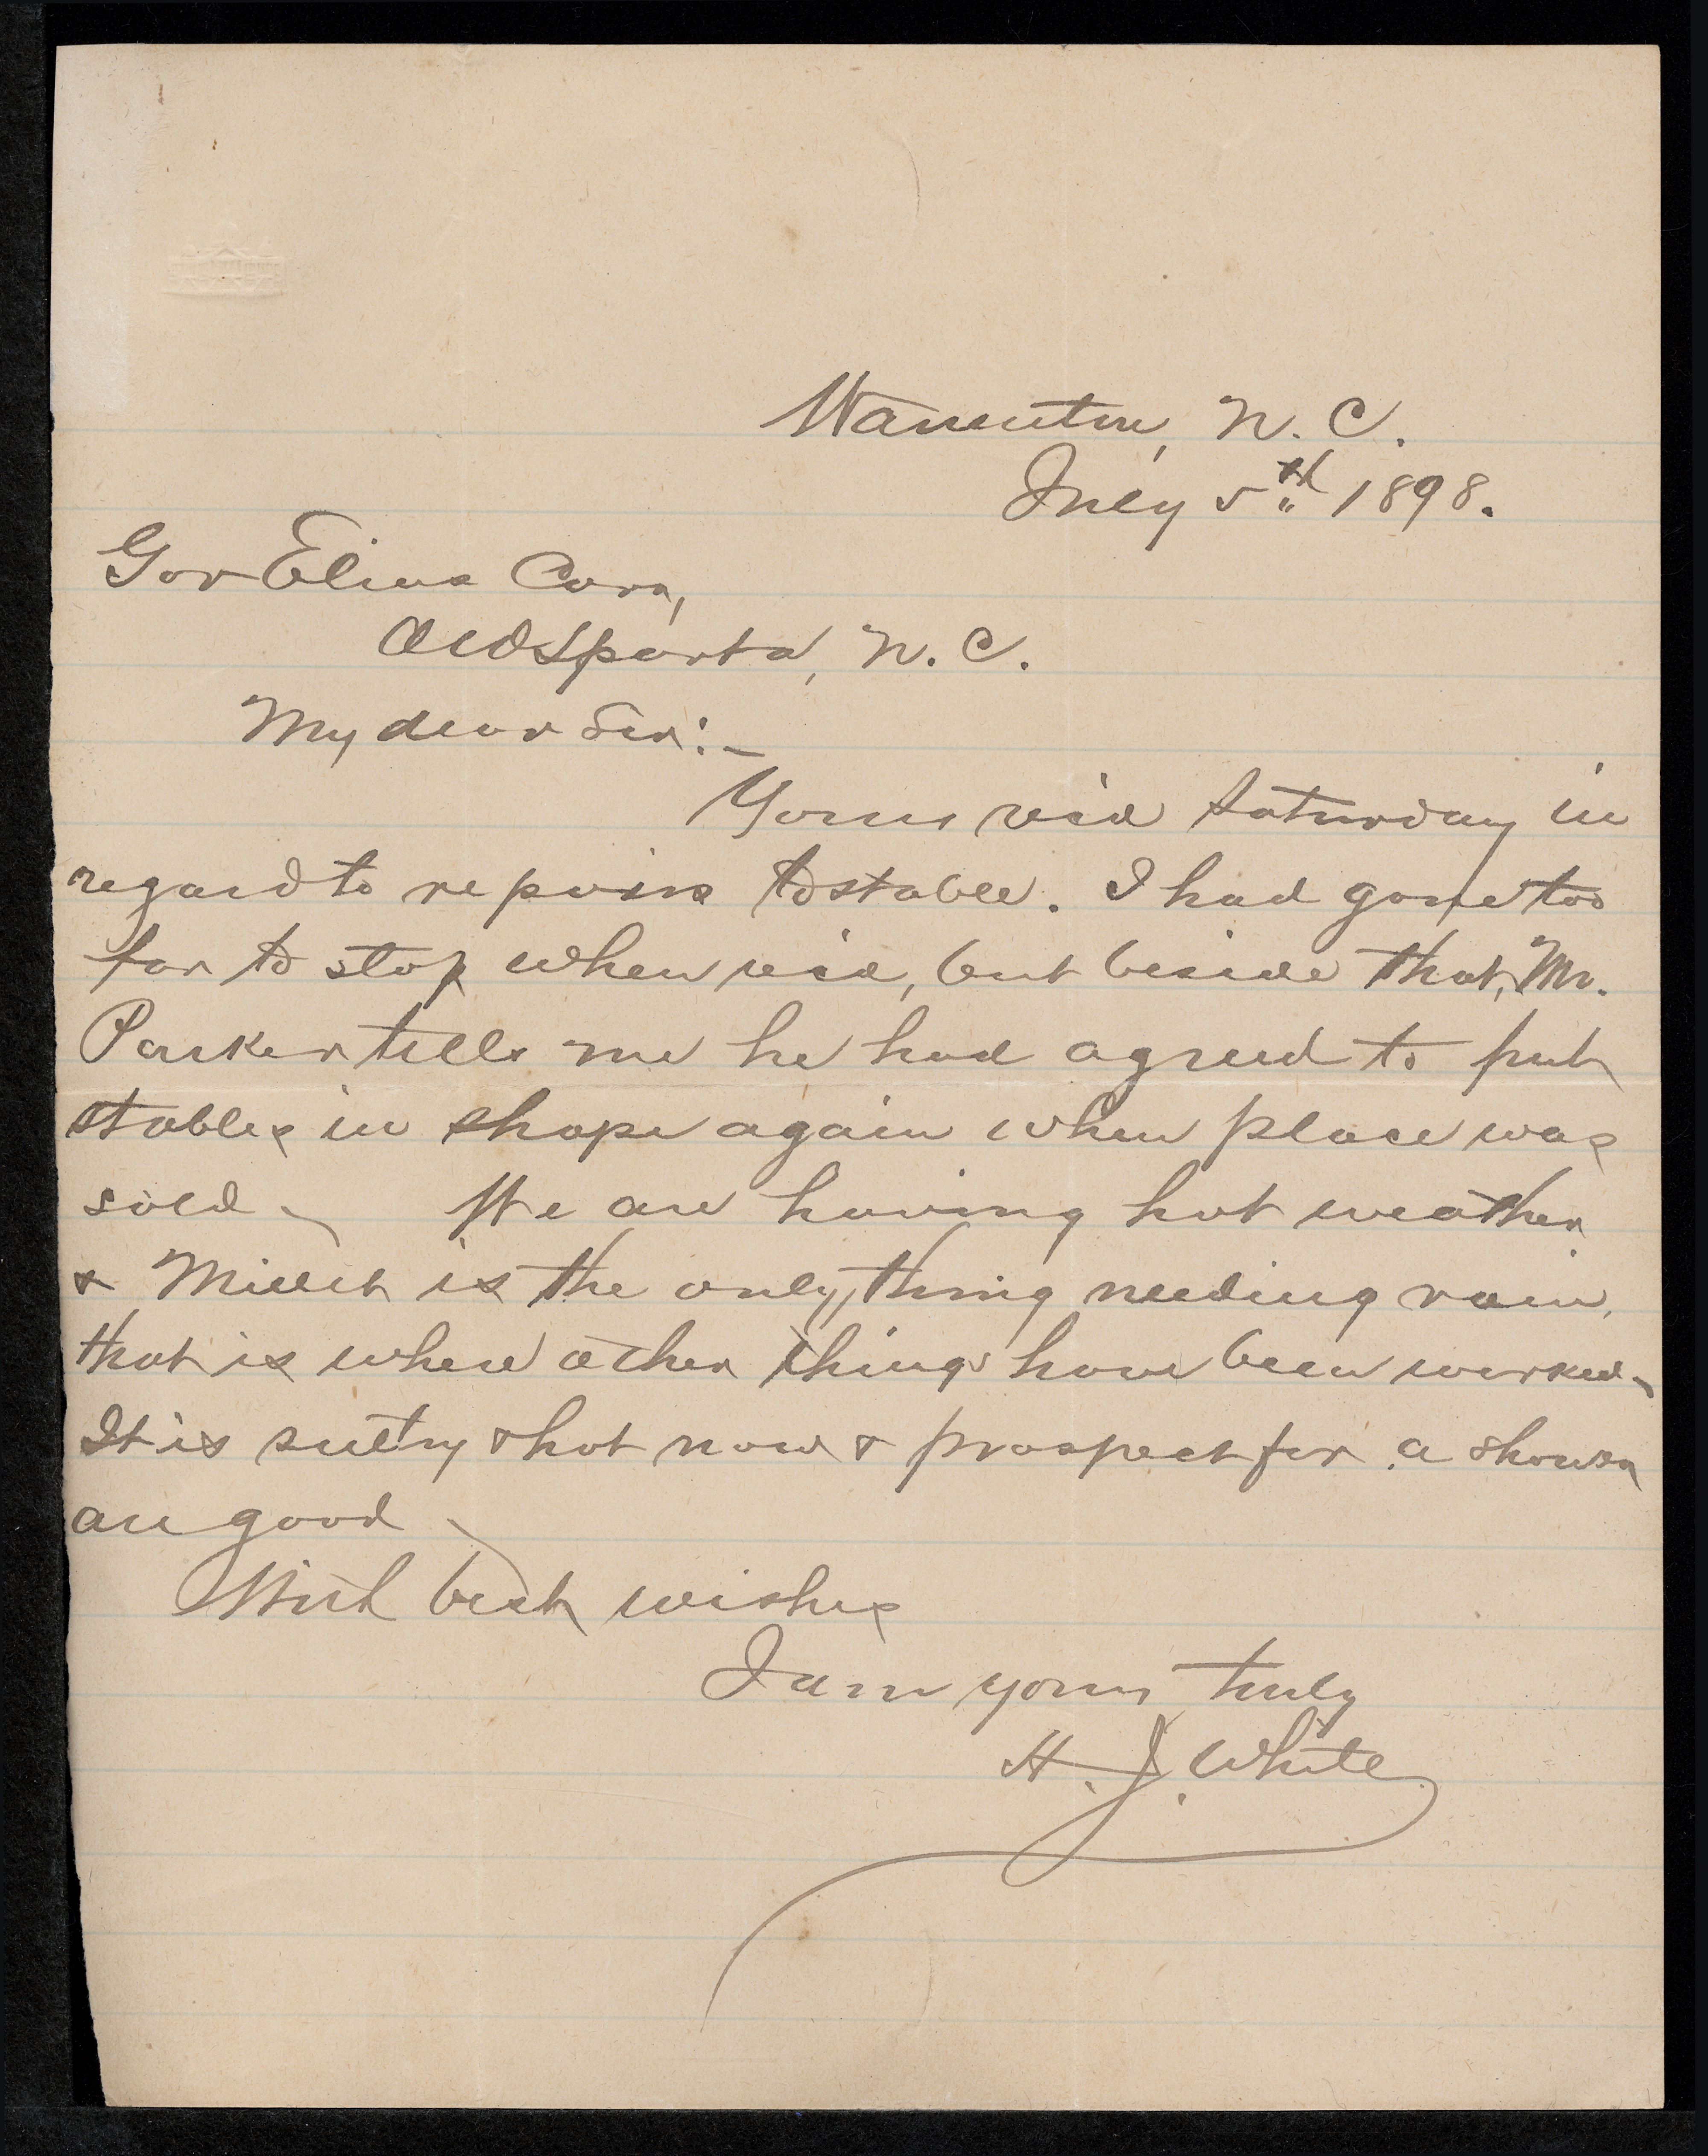 Warrenton, N. C.
July 5th 1898.
Gov Elias Carr,
Old Sparta, N. C.
My dear Sir:-
Yours rec'd Saturday in
regard to repairs to stable. I had gone too
far to stop when rec'd, but beside that, Mr.
Parker tells me he had agreed to put
stables in shape again when place was
sold - We are having hot weather
& Millet is the only thing needing rain,
that is where other things have been worked-
It is sultry & hot now & prospect for a shower
are good -
With best wishes
I am yours truly
H. J. White